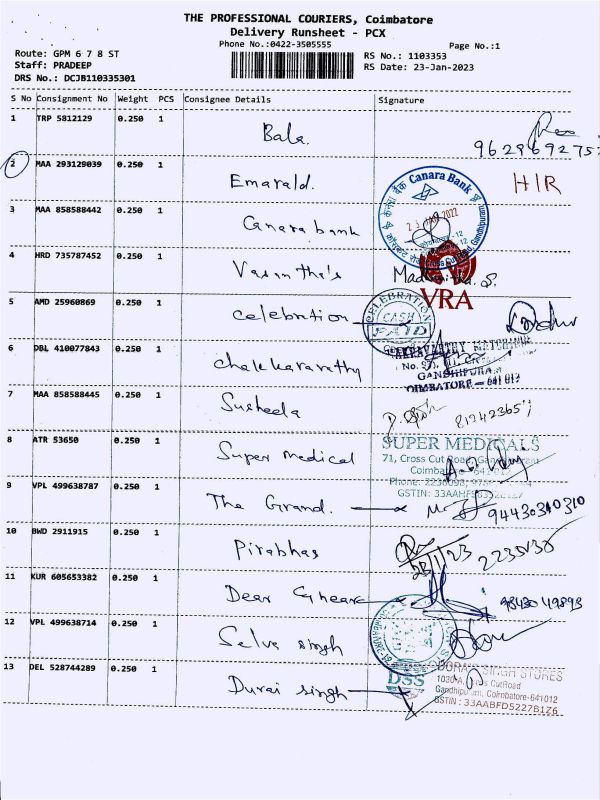 THE PROFESSIONAL COURIERS, Coimbatore
Delivery Runsheet - PCX
Phone No.:0422-3505555
Page No.:1
Route: GPM 6 7 8 ST
RS No.: 1103353
Staff: PRADEEP
RS Date: 23-Jan-2023
DRS No.: DCJB110335301
S No Consignment No Weight PCS Consignee Details Signature
1 TRP 5812129 0.250 1 Bala.
2 MAA 293129039 0.250 1 Emarald. H/R
Canara Bank
3 MAA 858588442 0.250 1 Canara bank
4 HRD 735787452 0.250 1 Vasantha's
VRA
5 AMD 25960869 0.250 1 celebration
CELEBRATION
CASH
PAID
6 DBL 410077843 0.250 1 chakkaravathy
GANDHIPURA
COIMBATORE - 641 012
7 MAA 858588445 0.250 1 Susheela
8 ATR 53650 0.250 1 Super medical
SUPER MEDICALS
71, Cross Cut Road,
9 VPL 499638787 0.250 1 The Grand.
10 BWD 2911915 0.250 1 Pirabhas
23/1/23 2235030
11 KUR 605653382 0.250 1 Dear
12 VPL 499638714 0.250 1 Selva singh
13 DEL 528744289 0.250 1 Durai singh
DSS
DURAI SINGH STORES
Coimbatore-641012
GSTIN : 33AABFD5227B1Z6